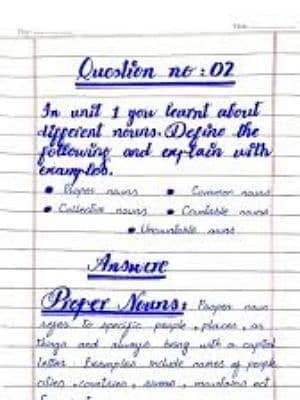 Question no : 02
In unit 1 you learnt about
different nouns. Define the
following and explain with
examples.
• Proper nouns • Common nouns
• Collective nouns • Countable nouns
• Uncountable nouns
Answere
Proper Nouns: Proper noun
refers to specific people, places, or
things and always being with a capital
letter. Examples include names of people
cities, countries, rivers, mountains ect